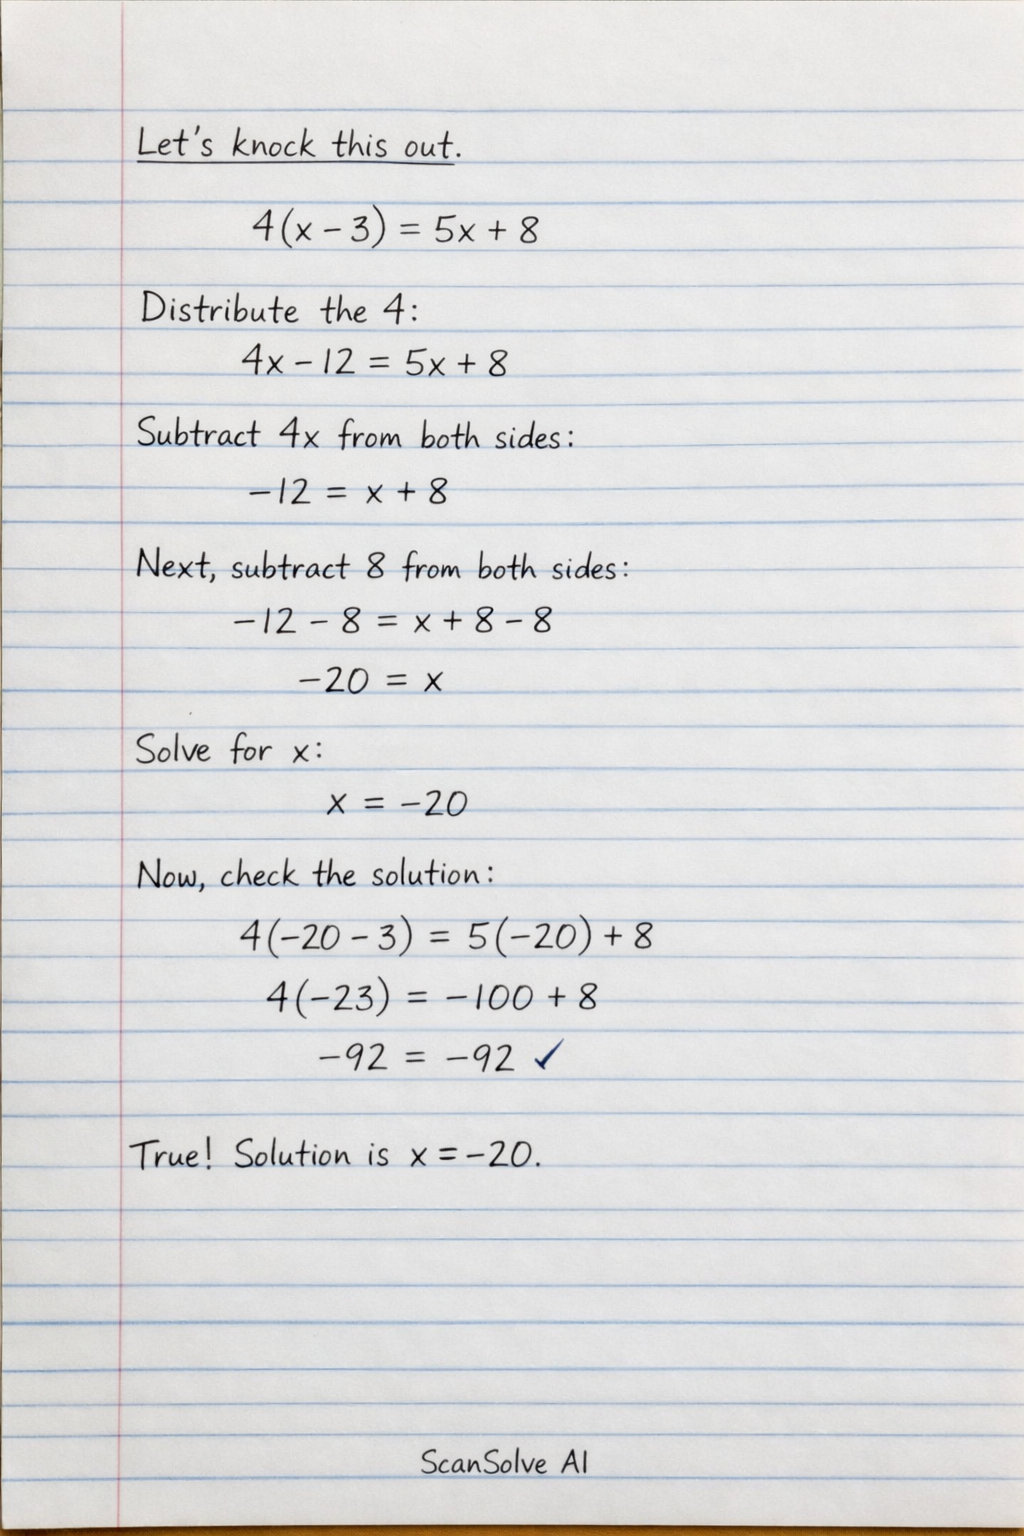 Let's knock this out.
4(x − 3) = 5x + 8
Distribute the 4:
4x − 12 = 5x + 8
Subtract 4x from both sides:
−12 = x + 8
Next, subtract 8 from both sides:
−12 − 8 = x + 8 − 8
−20 = x
Solve for x:
x = −20
Now, check the solution:
4(−20 − 3) = 5(−20) + 8
4(−23) = −100 + 8
−92 = −92 ✓
True! Solution is x = −20.
ScanSolve AI